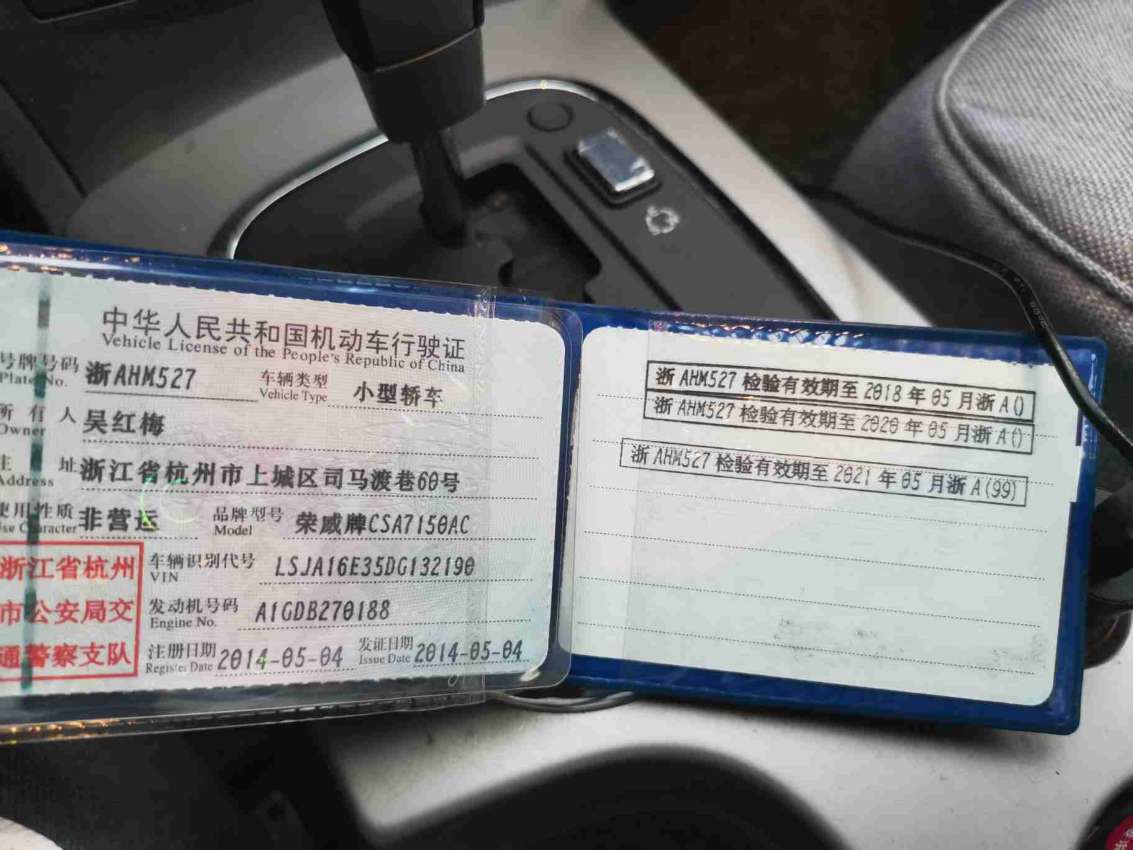 中华人民共和国机动车行驶证
Vehicle License of the People's Republic of China
号牌号码 浙AHM527 车辆类型 小型轿车
Plate No. Vehicle Type
所有人 吴红梅
Owner
住址 浙江省杭州市上城区司马渡巷60号
Address
使用性质 非营运 品牌型号 荣威牌CSA7150AC
Use Character Model
浙江省杭州
市公安局交
通警察支队
车辆识别代号 LSJA16E35DG132190
VIN
发动机号码 A1GDB270188
Engine No.
注册日期 2014-05-04 发证日期 2014-05-04
Register Date Issue Date
浙AHM527 检验有效期至 2018 年 05 月浙A()
浙AHM527 检验有效期至 2020 年 05 月浙A()
浙AHM527 检验有效期至 2021 年 05 月浙A(99)